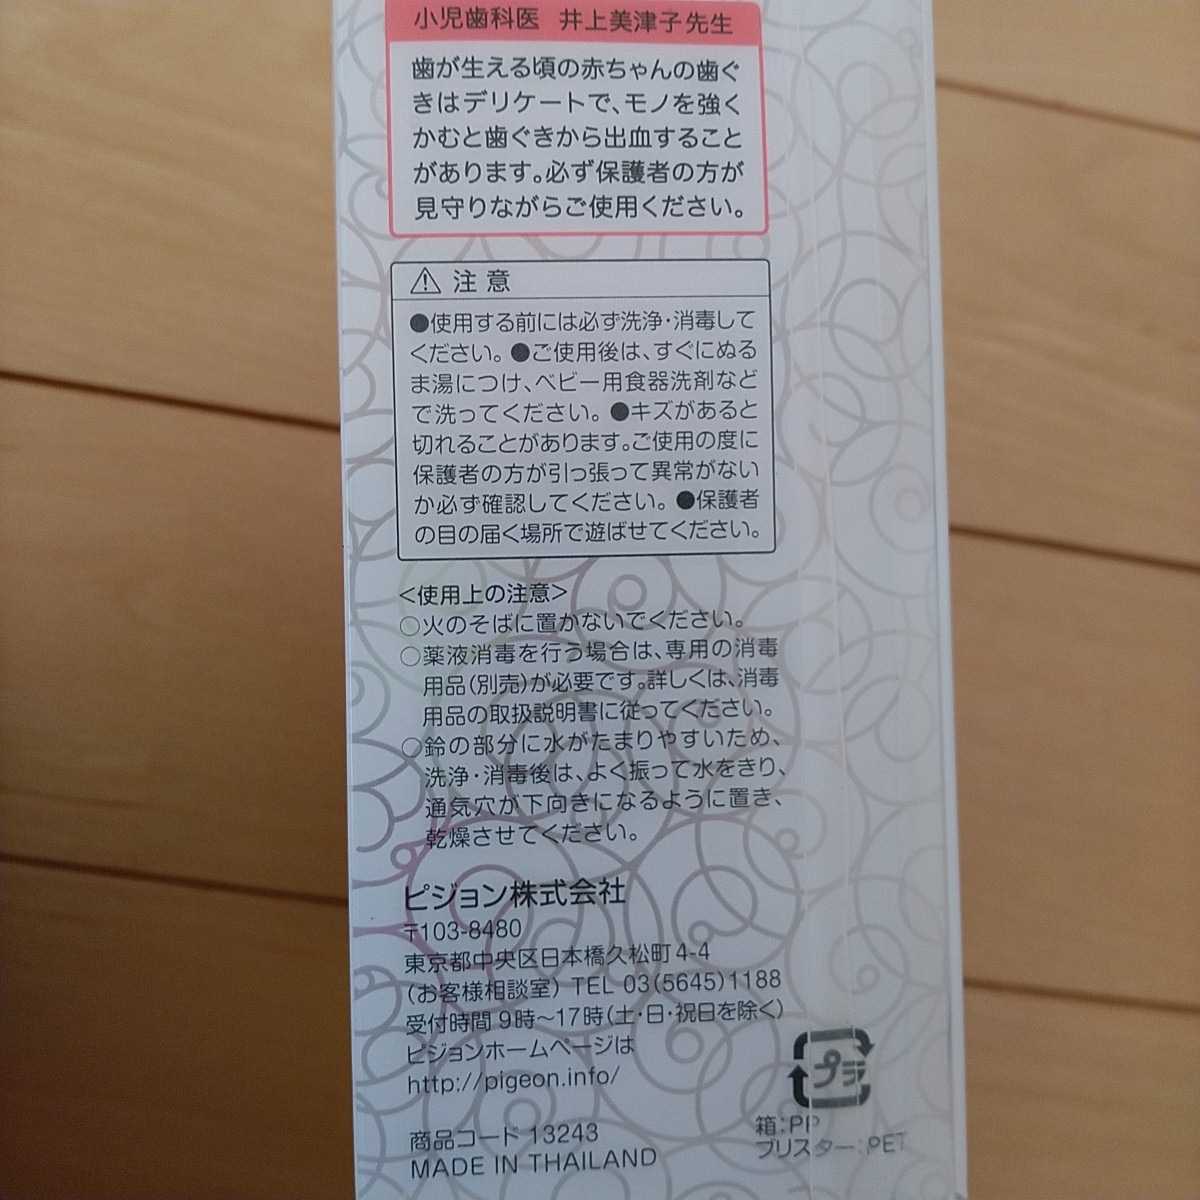 小児歯科医 井上美津子先生
歯が生える頃の赤ちゃんの歯ぐ
きはデリケートで、モノを強く
かむと歯ぐきから出血すること
があります。必ず保護者の方が
見守りながらご使用ください。
注意
●使用する前には必ず洗浄・消毒して
ください。●ご使用後は、すぐにぬる
ま湯につけ、ベビー用食器洗剤など
で洗ってください。●キズがあると
切れることがあります。ご使用の度に
保護者の方が引っ張って異常がない
か必ず確認してください。●保護者
の目の届く場所で遊ばせてください。
<使用上の注意>
○火のそばに置かないでください。
○薬液消毒を行う場合は、専用の消毒
用品(別売)が必要です。詳しくは、消毒
用品の取扱説明書に従ってください。
○鈴の部分に水がたまりやすいため、
洗浄・消毒後は、よく振って水をきり、
通気穴が下向きになるように置き、
乾燥させてください。
ピジョン株式会社
〒103-8480
東京都中央区日本橋久松町4-4
(お客様相談室) TEL 03(5645)1188
受付時間 9時〜17時(土・日・祝日を除く)
ピジョンホームページは
http://pigeon.info/
プラ
箱:PP
ブリスター:PET
商品コード 13243
MADE IN THAILAND